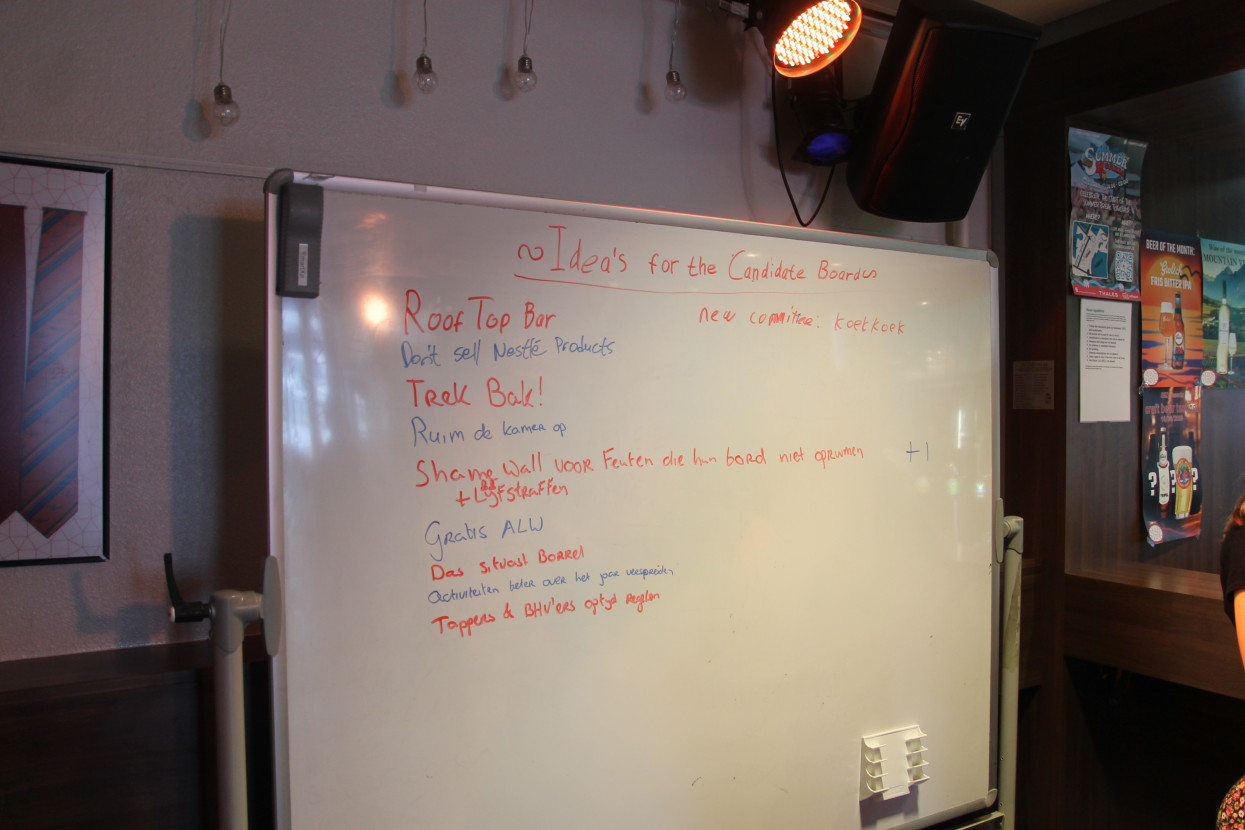 ~ Idea's for the Candidate Boards
Roof Top Bar
new committee: koekkoek
Don't sell Nestlé Products
Trek Bak!
Ruim de kamer op
Shame Wall voor Feuten die hun bord niet opruimen +1
+ Lijfstraffen
Gratis ALW
Das situasi Borrel
Activiteiten beter over het jaar verspreiden
Tappers & BHV'ers optijd regelen
EV
SUMMER
THALES
BEER OF THE MONTH:
Grolsch
FRIS BITTER IPA
MOUNTAIN
? ?